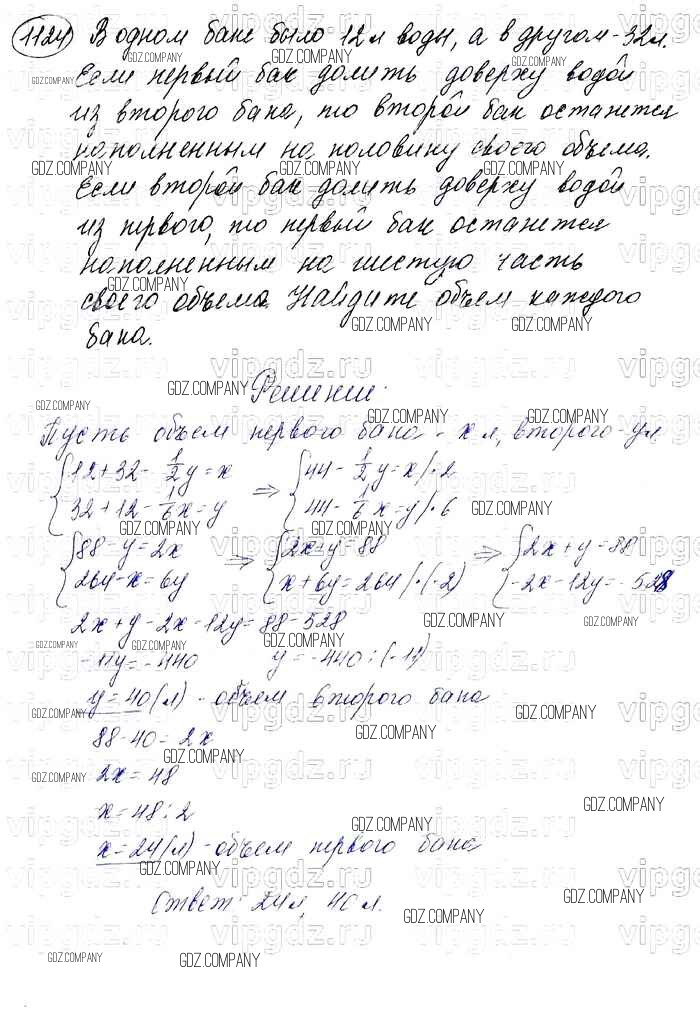 1124) В одном баке было 12 л воды, а в другом - 32 л.
Если первый бак долить доверху водой
из второго бака, то второй бак останется
наполненным на половину своего объема.
Если второй бак долить доверху водой
из первого, то первый бак останется
наполненным на шестую часть
своего объема. Найдите объем каждого
бака.
Решение.
Пусть объем первого бака - x л, второго - y л
{12+32-1/2y=x => {44-1/2y=x/·2
{32+12-1/6x=y {44-1/6x=y/·6
{88-y=2x => {2x+y=88 => {2x+y=88
{264-x=6y {x+6y=264/·(-2) {-2x-12y=-528
2x+y-2x-12y=88-528
-11y=-440 y=-440:(-11)
y=40(л) - объем второго бака
88-40=2x
2x=48
x=48:2
x=24(л) - объем первого бака
Ответ: 24 л, 40 л.
GDZ.COMPANY
vipgdz.ru